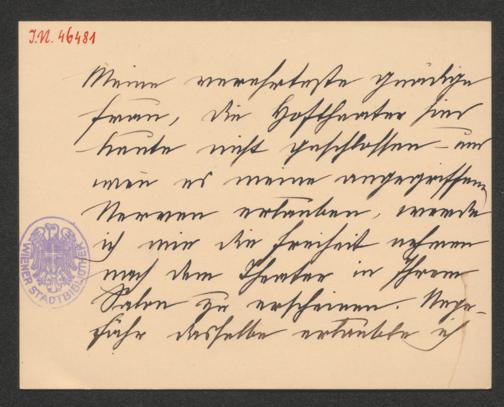 I.N. 46481
Meine verehrteste gnädige
Frau, die Hoftheater sind
heute nicht geschlossen – und
wen es meine angegriffenen
Nerven erlauben, werde
ich mir die Freiheit nehmen
nach dem Theater in Ihrem
Salon zu erscheinen. Unge-
fähr dasselbe erlaubte ich
WIENER STADTBIBLIOTHEK